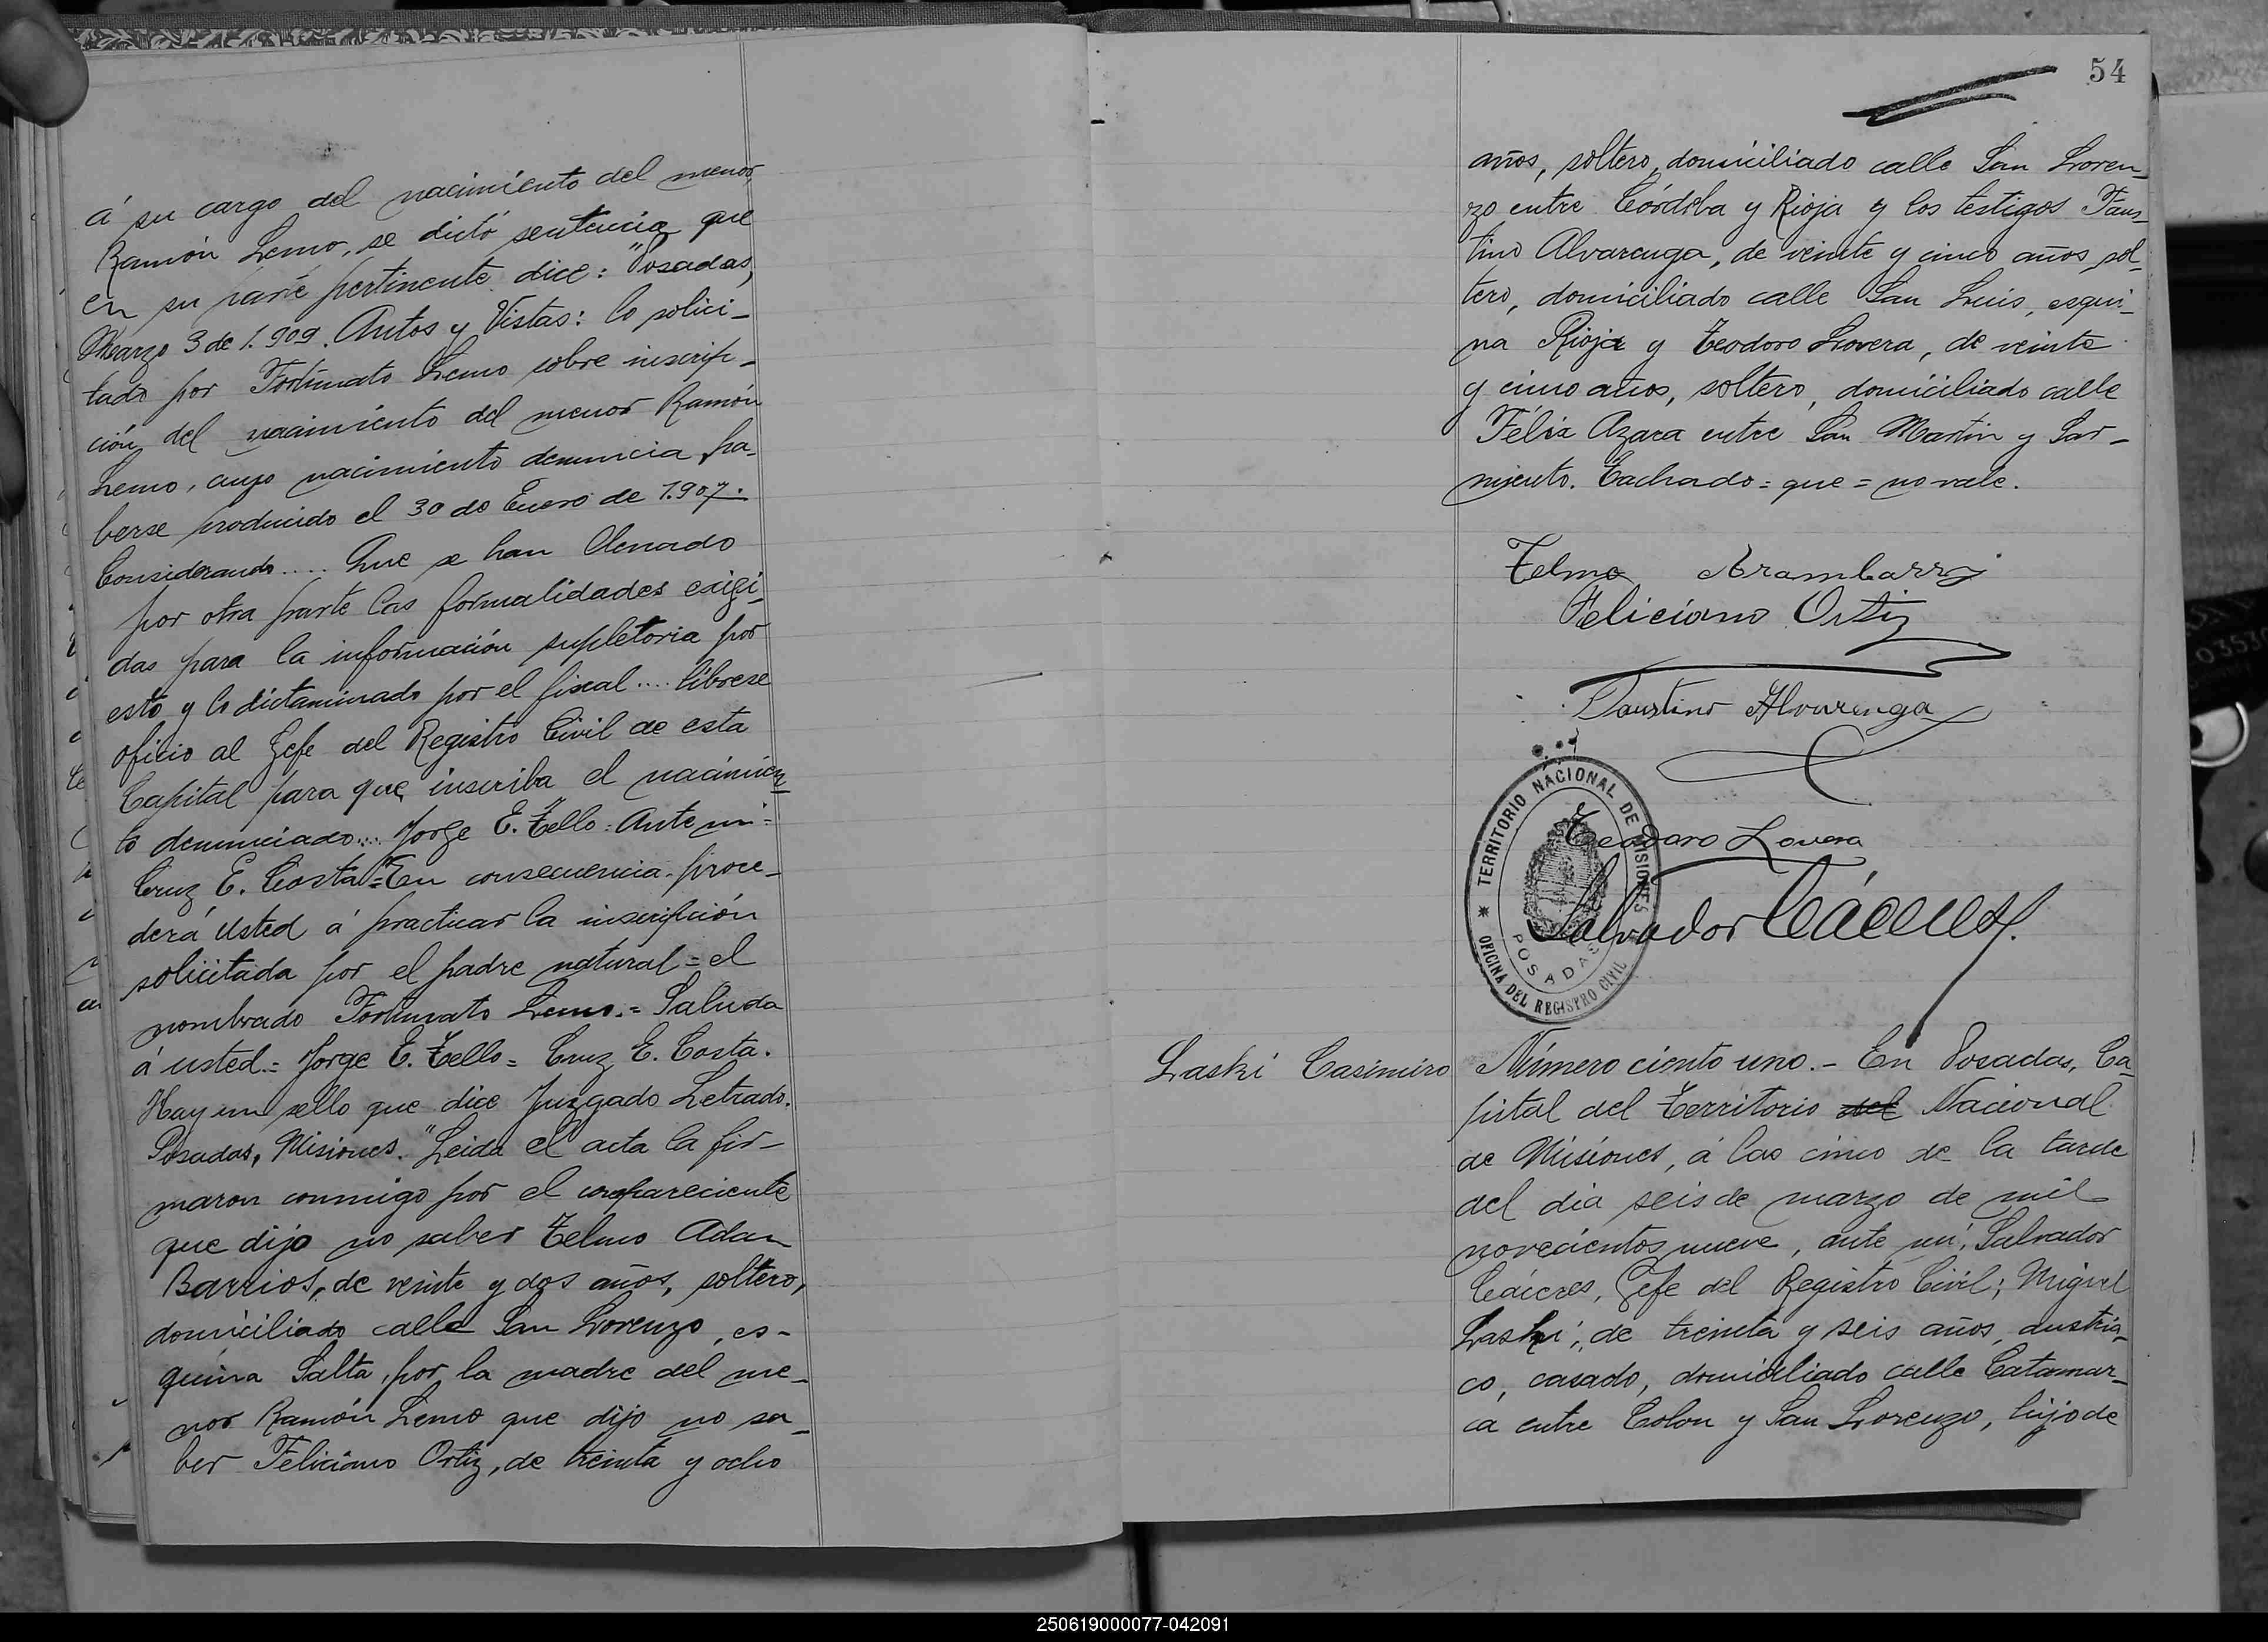 á su cargo del nacimiento del menor,
Ramón Lemo, se dictó sentencia que
en su parte pertinente dice: "Posadas,
Marzo 3 de 1.909. Autos y Vistas: lo solici-
tado por Fortunato Lemo sobre inscrip-
ción del nacimiento del menor Ramón
Lemo, cuyo nacimiento denuncia ha-
berse producido el 30 de Enero de 1.907.
Considerando.... Que se han llenado
por otra parte las formalidades exigi-
das para la información supletoria por
esto y lo dictaminado por el fiscal.... líbrese
oficio al Gefe del Registro Civil de esta
Capital para que inscriba el nacimien-
to denunciado.... Jorge E. Tello = Ante mi =
Cruz E. Costa" = En consecuencia proce-
derá Usted á practicar la inscripción
solicitada por el padre natural = el
nombrado Fortunato Lemo. = Saluda
á usted. = Jorge E. Tello = Cruz E. Costa.
Hay un sello que dice Juzgado Letrado.
Posadas, Misiones." Leida el acta la fir-
maron conmigo por el compareciente
que dijo no saber Telmo Adan
Barrios, de veinte y dos años, soltero,
domiciliado calle San Lorenzo, es-
quina Salta, por la madre del me-
nor Ramón Lemo que dijo no sa-
ber Feliciano Ortiz, de treinta y ocho
54
años, soltero, domiciliado calle San Loren-
zo entre Córdoba y Rioja y los testigos Faus-
tino Alvarenga, de veinte y cinco años, sol-
tero, domiciliado calle San Luis, esqui-
na Rioja y Teodoro Lovera, de veinte
y cinco años, soltero, domiciliado calle
Félix Azara entre San Martin y Sar-
miento. Tachado = que = no vale.
Telmo
Feliciano Ortiz
Faustino Alvarenga
Teodoro Lovera
Salvador Cáceres
TERRITORIO NACIONAL DE MISIONES
POSADAS
OFICINA DEL REGISTRO CIVIL
Laski Casimiro
Número ciento uno. - En Posadas, Ca-
pital del Territorio del Nacional
de Misiones, á las cinco de la tarde
del dia seis de marzo de mil
novecientos nueve, ante mi, Salvador
Cáceres, Gefe del Registro Civil; Miguel
Laski, de treinta y seis años, austria-
co, casado, domiciliado calle Catamar-
ca entre Colon y San Lorenzo, hijo de
250619000077-042091